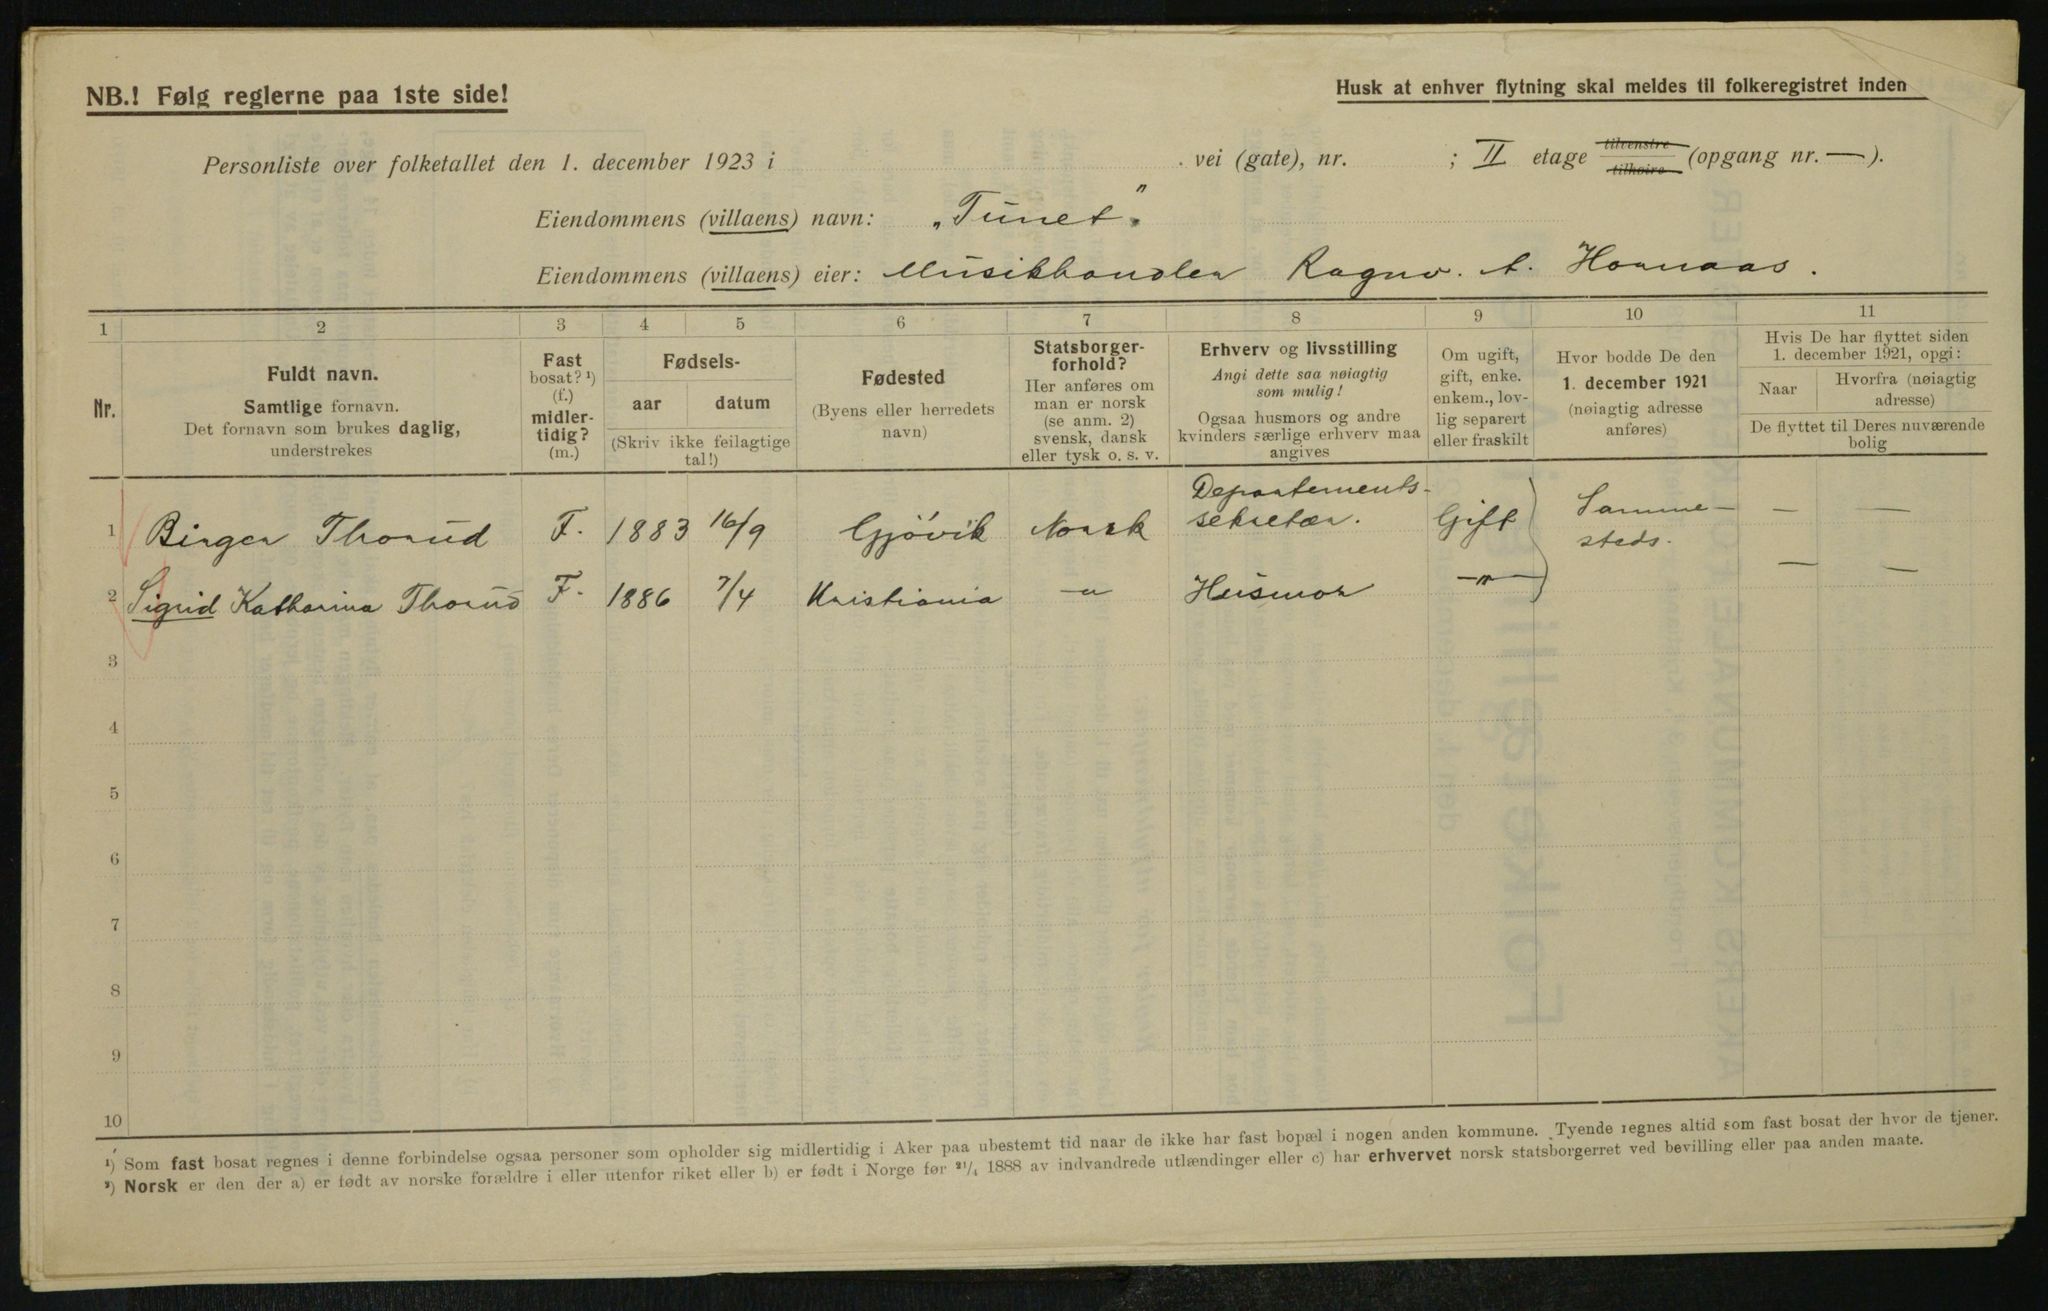 NB.! Følg reglerne paa 1ste side!
Husk at enhver flytning skal meldes til folkeregistret inden
Personliste over folketallet den 1. december 1923 i vei (gate), nr. ; II etage tilvenstre tilhøire (opgang nr. — ).
Eiendommens (villaens) navn: „Tunet”.
Eiendommens (villaens) eier: Musikhandler Ragnv. A. Hornaas.
1 2 3 4 5 6 7 8 9 10 11
Nr.
Fuldt navn.
Samtlige fornavn.
Det fornavn som brukes daglig,
understrekes
Fast
bosat? ¹)
(f.)
midler-
tidig?
(m.)
Fødsels-
aar datum
(Skriv ikke feilagtige
tal!)
Fødested
(Byens eller herredets
navn)
Statsborger-
forhold?
Her anføres om
man er norsk
(se anm. 2)
svensk, dansk
eller tysk o. s. v.
Erhverv og livsstilling
Angi dette saa nøiagtig
som mulig!
Ogsaa husmors og andre
kvinders særlige erhverv maa
angives
Om ugift,
gift, enke.
enkem., lov-
lig separert
eller fraskilt
Hvor bodde De den
1. december 1921
(nøiagtig adresse
anføres)
Hvis De har flyttet siden
1. december 1921, opgi:
Naar
Hvorfra (nøiagtig
adresse)
De flyttet til Deres nuværende
bolig
1 Birger Thorud F. 1883 16/9 Gjøvik Norsk Departements-
sekretær. Gift Samme-
steds. — —
2 Sigrid Katharina Thorud F. 1886 7/4 Kristiania —"— Husmor —"— — —
3
4
5
6
7
8
9
10
¹) Som fast bosat regnes i denne forbindelse ogsaa personer som opholder sig midlertidig i Aker paa ubestemt tid naar de ikke har fast bopæl i nogen anden kommune. Tyende regnes altid som fast bosat der hvor de tjener.
²) Norsk er den der a) er født av norske forældre i eller utenfor riket eller b) er født i Norge før 21/4 1888 av indvandrede utlændinger eller c) har erhvervet norsk statsborgerret ved bevilling eller paa anden maate.